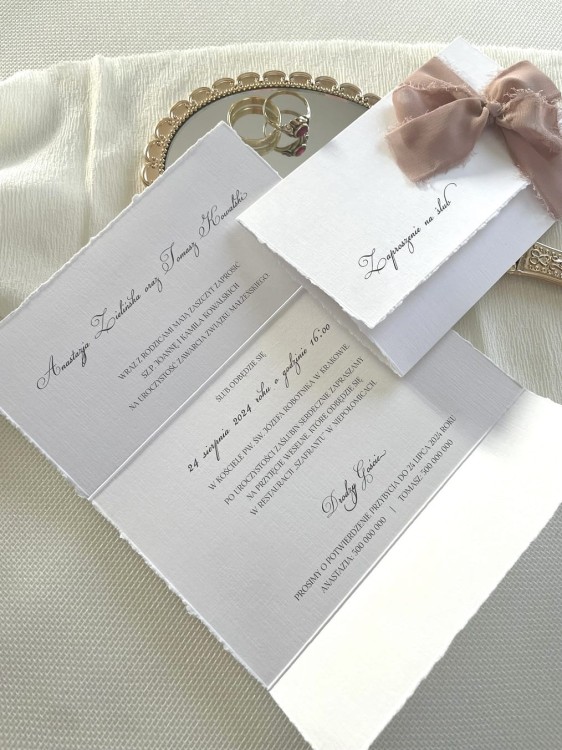 Zaproszenie na ślub
Anastazja Zielińska oraz Tomasz Kowalski
WRAZ Z RODZICAMI MAJĄ ZASZCZYT ZAPROSIĆ
SZ.P. JOANNĘ I KAMILA KOWALSKICH
NA UROCZYSTOŚĆ ZAWARCIA ZWIĄZKU MAŁŻEŃSKIEGO
ŚLUB ODBĘDZIE SIĘ
24 sierpnia 2024 roku o godzinie 16:00
W KOŚCIELE PW. ŚW. JÓZEFA ROBOTNIKA W KRAKOWIE.
PO UROCZYSTOŚCI ZAŚLUBIN SERDECZNIE ZAPRASZAMY
NA PRZYJĘCIE WESELNE, KTÓRE ODBĘDZIE SIĘ
W RESTAURACJI „SZAFRASTU" W NIEPOŁOMICACH.
Drodzy Goście
PROSIMY O POTWIERDZENIE PRZYBYCIA DO 24 LIPCA 2024 ROKU
ANASTAZIA: 500 000 000 | TOMASZ: 500 000 000